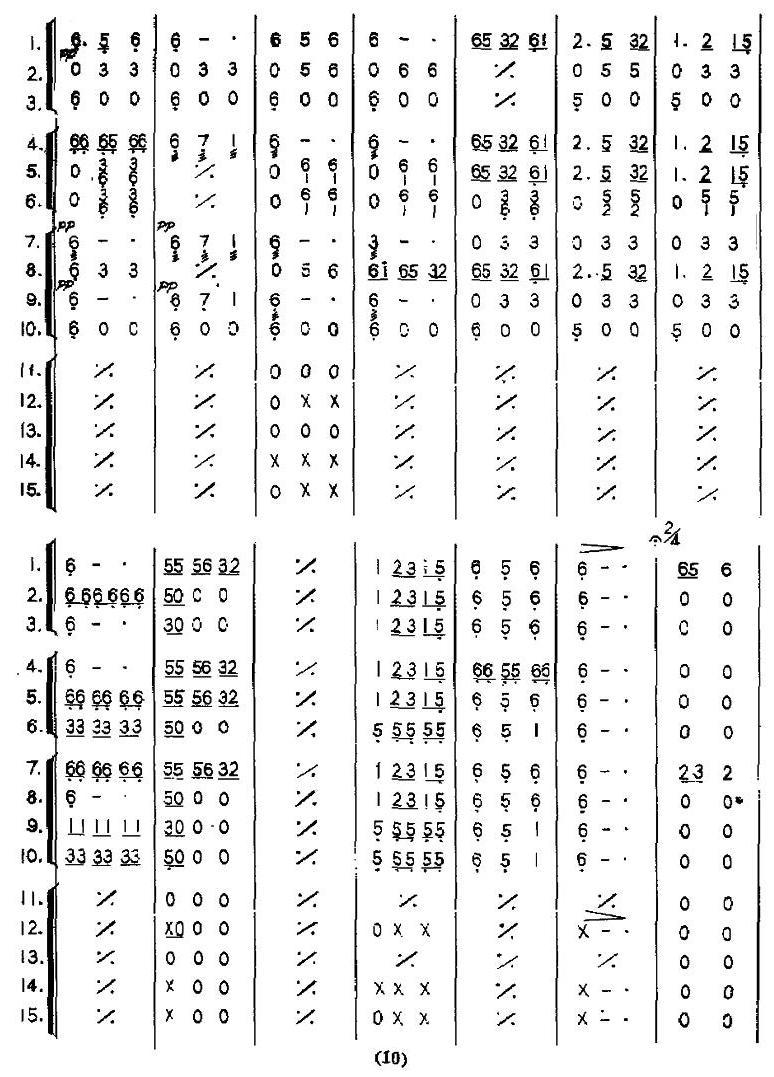 1. 6. 5 6 | 6 - · | 6 5 6 | 6 - · | 65 32 61 | 2. 5 32 | 1. 2 15
pp
2. 0 3 3 | 0 3 3 | 0 5 6 | 0 6 6 | ٪ | 0 5 5 | 0 3 3
3. 6 0 0 | 6 0 0 | 6 0 0 | 6 0 0 | ٪ | 5 0 0 | 5 0 0
4. 66 65 66 | 6 7 1 | 6 - · | 6 - · | 65 32 61 | 2. 5 32 | 1. 2 15
5. 0 3/6 3/6 | ٪ | 0 6/1 6/1 | 0 6/1 6/1 | 65 32 61 | 2. 5 32 | 1. 2 15
6. 0 3/6 3/6 | ٪ | 0 6/1 6/1 | 0 6/1 6/1 | 0 3/6 3/6 | 0 5/2 5/2 | 0 5/1 5/1
pp pp
7. 6 - · | 6 7 1 | 6 - · | 3 - · | 0 3 3 | 0 3 3 | 0 3 3
8. 6 3 3 | ٪ | 0 5 6 | 61 65 32 | 65 32 61 | 2. 5 32 | 1. 2 15
pp pp
9. 6 - · | 6 7 1 | 6 - · | 6 - · | 0 3 3 | 0 3 3 | 0 3 3
10. 6 0 0 | 6 0 0 | 6 0 0 | 6 0 0 | 6 0 0 | 5 0 0 | 5 0 0
11. ٪ | ٪ | 0 0 0 | ٪ | ٪ | ٪ | ٪
12. ٪ | ٪ | 0 X X | ٪ | ٪ | ٪ | ٪
13. ٪ | ٪ | 0 0 0 | ٪ | ٪ | ٪ | ٪
14. ٪ | ٪ | X X X | ٪ | ٪ | ٪ | ٪
15. ٪ | ٪ | 0 X X | ٪ | ٪ | ٪ | ٪
2/4
1. 6 - · | 55 56 32 | ٪ | 1 23 15 | 6 5 6 | 6 - · | 65 6
2. 6 66 6 6 6 | 50 0 0 | ٪ | 1 23 15 | 6 5 6 | 6 - · | 0 0
3. 6 - · | 30 0 0 | ٪ | 1 23 15 | 6 5 6 | 6 - · | 0 0
4. 6 - · | 55 56 32 | ٪ | 1 23 15 | 66 55 66 | 6 - · | 0 0
5. 66 66 66 | 55 56 32 | ٪ | 1 23 15 | 6 5 6 | 6 - · | 0 0
6. 33 33 33 | 50 0 0 | ٪ | 5 55 55 | 6 5 1 | 6 - · | 0 0
7. 66 66 66 | 55 56 32 | ٪ | 1 23 15 | 6 5 6 | 6 - · | 23 2
8. 6 - · | 50 0 0 | ٪ | 1 23 15 | 6 5 6 | 6 - · | 0 0
9. 11 11 11 | 30 0 0 | ٪ | 5 55 55 | 6 5 1 | 6 - · | 0 0
10. 33 33 33 | 50 0 0 | ٪ | 5 55 55 | 6 5 1 | 6 - · | 0 0
11. ٪ | 0 0 0 | ٪ | ٪ | ٪ | ٪ | 0 0
12. ٪ | X0 0 0 | ٪ | 0 X X | ٪ | X - · | 0 0
13. ٪ | 0 0 0 | ٪ | ٪ | ٪ | ٪ | 0 0
14. ٪ | X 0 0 | ٪ | X X X | ٪ | X - · | 0 0
15. ٪ | X 0 0 | ٪ | 0 X X | ٪ | X - · | 0 0
(10)